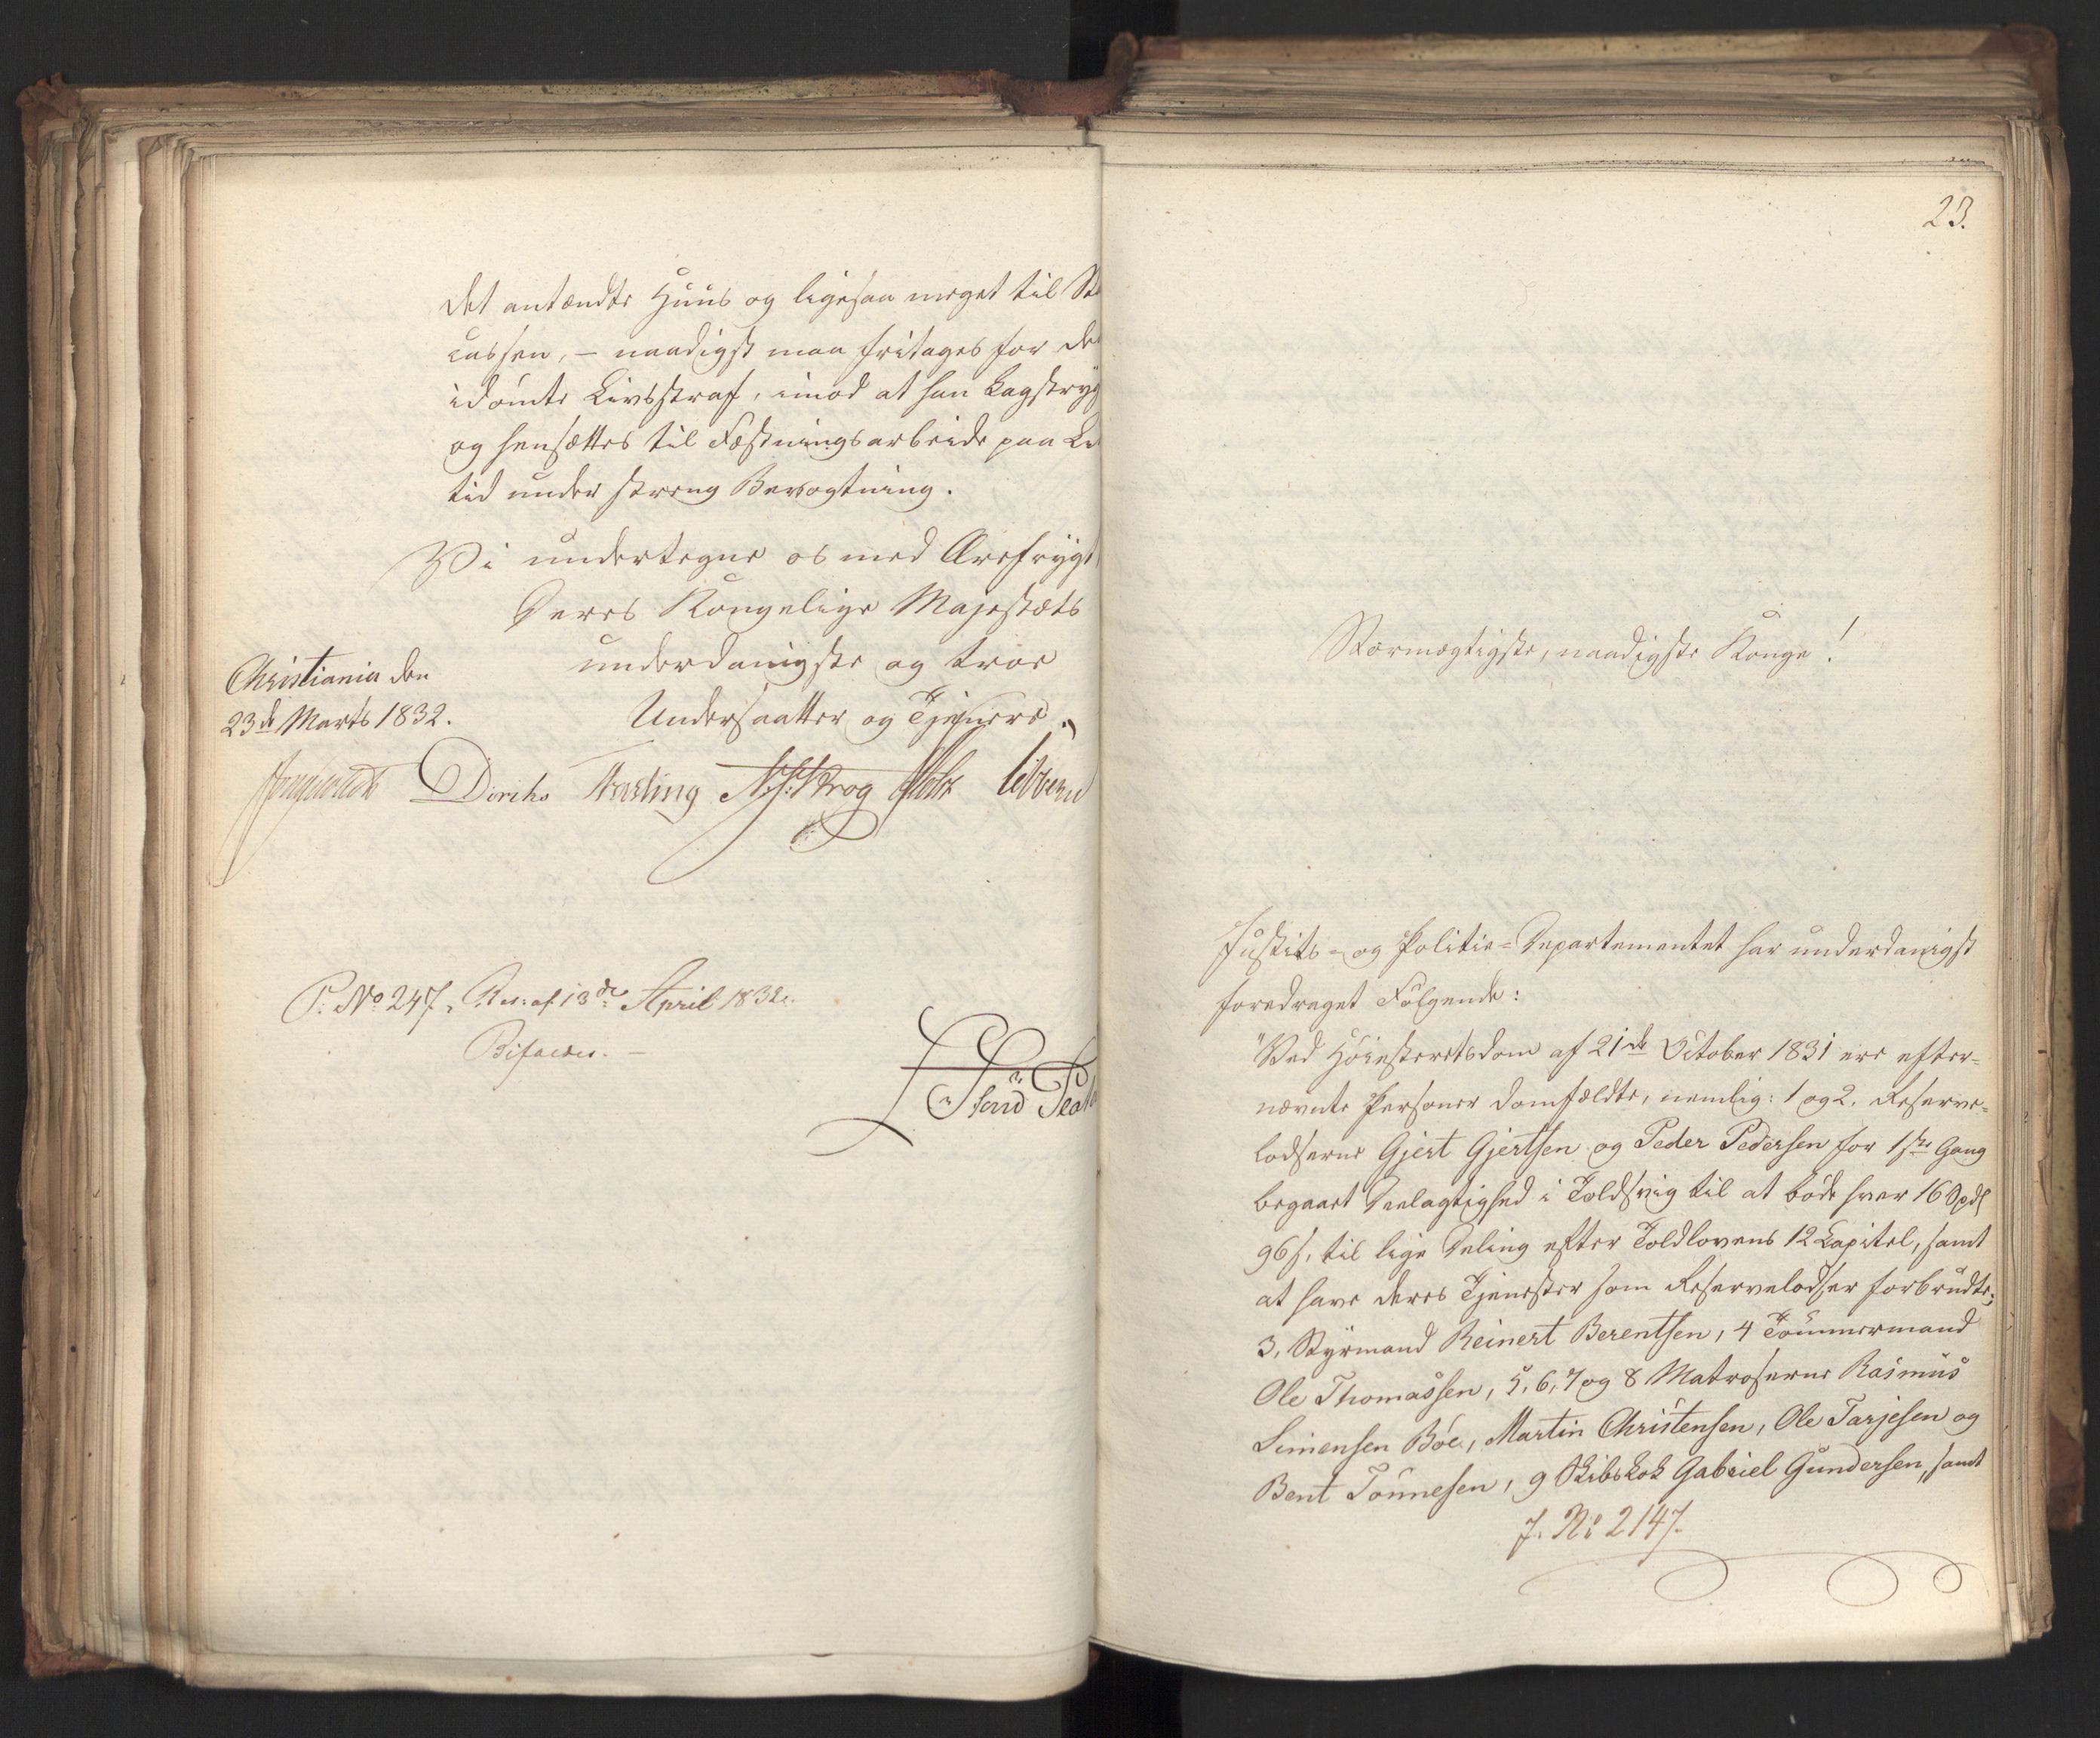 det antændte Huus og ligesaa meget til St
cassen, – naadigst maa fritages for de
idømte Livsstraf, imod at han Kagstryg
og hensættes til Fæstningsarbeide paa Li
tid under streng Bevogtning.
Vi undertegne os med Ærefrygt
Deres Kongelige Majestæts
underdanigste og troe
Undersaatter og Tjenere.
Christiania den
23de Marts 1832.
Diriks
P: No 247, Res: af 13de April 1832.
Bifaldes. –
23.
Stormægtigste, naadigste Konge!
Justits- og Politie-Departementet har underdanigst
foredraget Følgende:
"Ved Høiesteretsdom af 21de October 1831 ere efter-
nævnte Personer domfældte, nemlig: 1 og 2. Reserve-
lodserne Gjert Gjertsen og Peder Pedersen for 1ste Gang
begaaet Deelagtighed i Toldsvig til at bøde hver 16 Spdl
96 s, til lige Deling efter Toldlovens 12 Capitel, samt
at have deres Tjenester som Reservelodser forbrudte;
3, Styrmand Reinert Berentsen, 4 Tømmermand
Ole Thomassen, 5, 6, 7 og 8 Matroserne Rasmus
Simensen Bøe, Martin Christensen, Ole Tarjesen og
Bent Tønnesen, 9 Skibskok Gabriel Gundersen, samt
J. No 2147.